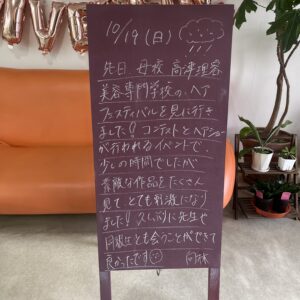 10/19(日)
先日 母校 高津理容
美容専門学校の、ヘア
フェスティバルを見に行き
ました! コンテストとヘアショー
が行われるイベントで、
少しの時間でしたが
素敵な作品をたくさん
見て とても刺激になり
ました! 久しぶりに先生や
同級生とも会うことができて
良かったです